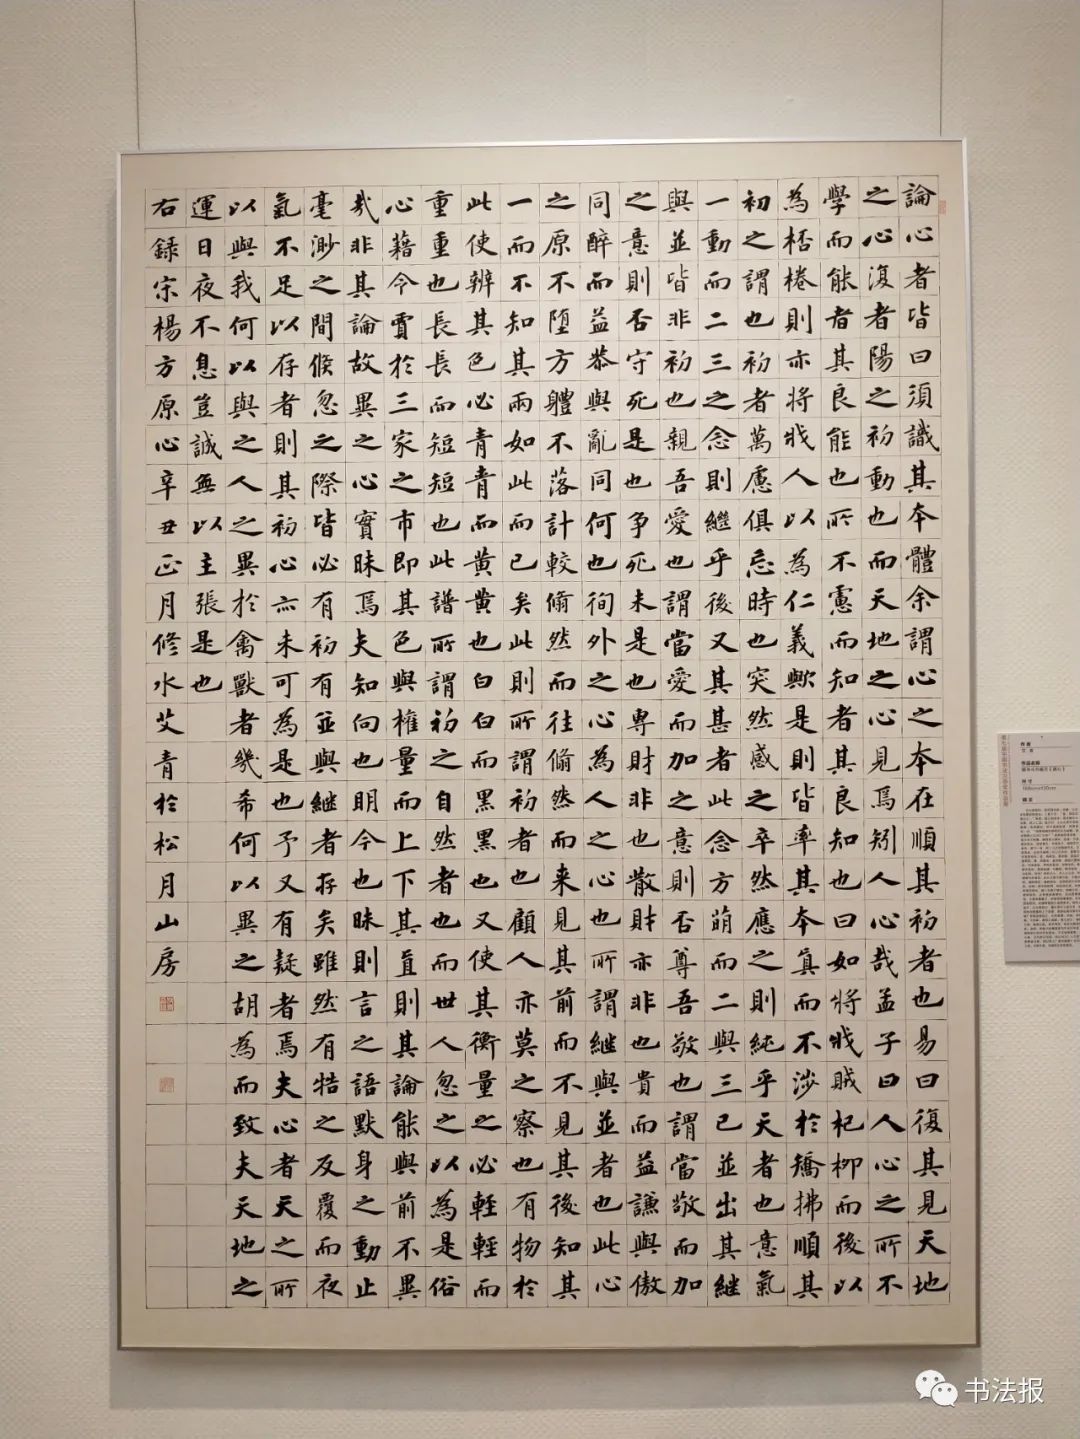 論心者皆曰須識其本體余謂心之本在順其初者也易曰復其見天地
之心復者陽之初動也而天地之心見焉矧人心哉孟子曰人心之所不
學而能者其良能也所不慮而知者其良知也曰如將戕賊杞柳而後以
為桮棬則亦將戕人以為仁義歟是則皆率其本真而不涉於矯拂順其
初之謂也初者萬慮俱忘時也突然感之卒然應之則純乎天者也意氣
一動而二三之念則繼乎後又其甚者此念方萌而二與三已並出其繼
與並皆非初也親吾愛也謂當愛而加之意則否尊吾敬也謂當敬而加
之意則否守死是也爭死未是也專財非也散財亦非也貴而益謙與傲
同醉而益恭與亂同何也徇外之心為人之心也所謂繼與並者也此心
之原不墮方體不落計較翛然而往翛然而来見其前而不見其後知其
一而不知其兩如此而已矣此則所謂初者也顧人亦莫之察也有物於
此使辨其色必青青而黃黃也白白而黑黑也又使其衡量之必輕輕而
重重也長長而短短也此譜所謂初之自然者也而世人忽之以為是俗
心藉今賈於三家之市即其色與權量而上下其直則其論能與前不異
哉非其論故異之心實昧焉夫知向也明今也昧則言之語默身之動止
毫渺之間倏忽之際皆必有初有並與繼者存矣雖然有牿之反覆而夜
氣不足以存者則其初心亦未可為是也予又有疑者焉夫心者天之所
以與我何以與之人之異於禽獸者幾希何以異之胡為而致夫天地之
運日夜不息豈誠無以主張是也
右錄宋楊方原心辛丑正月修水艾青於松月山房
书法报